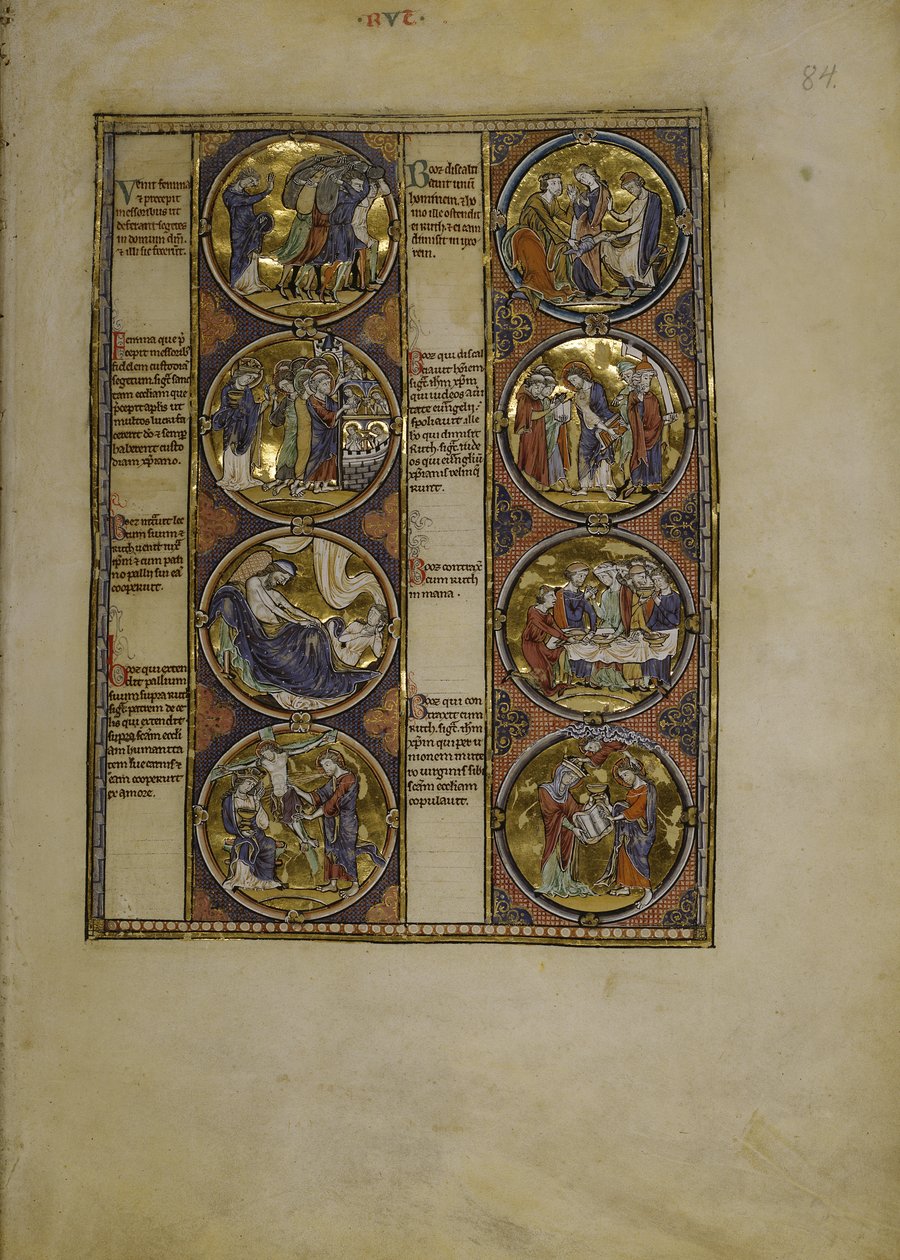 ·RVT·
84.
Venit femina
⁊ precepit
messoribus ut
deferant segetes
in domum dm̄.
⁊ illi sic fecerūt.
Femina que p̄
cepit messorib
fidelem custodiā
segetum. sigt̄ sanc
tam eccliam que
p̄cepit aplis ut
multos lucrifa
cerent dō ⁊ semp
haberent custo
diam xp̄iano.
Booz
tum suum ⁊
ruth uenit
⁊ cum
no pallii sui eā
cooperuit.
Booz qui exten
dit pallium
suum supra ruth
sigt̄ patrem de ce
lis qui extendit
supra sc̄am eccli
am humanita
tem sue carnis ⁊
eam cooperuit
ex amore.
Booz discalci
auit unū
hominem. ⁊ ho
mo ille ostendit
ei ruth. ⁊ ei eam
dimisit in uxo
rem.
Booz qui discal
ciauit hōīem
sigt̄ ihm̄ xp̄m
qui iudeos
euuangelii
spoliauit. ille
ho qui dimisit
ruth. sigt̄ iude
os qui
xp̄ianis relinq̄
runt.
Booz contrax̄
cum ruth
in mana.
Booz qui con
traxit cum
ruth. sigt̄. ihm̄
xp̄m qui per u
nionem
uirginis sibi
sc̄am eccliam
copulauit.